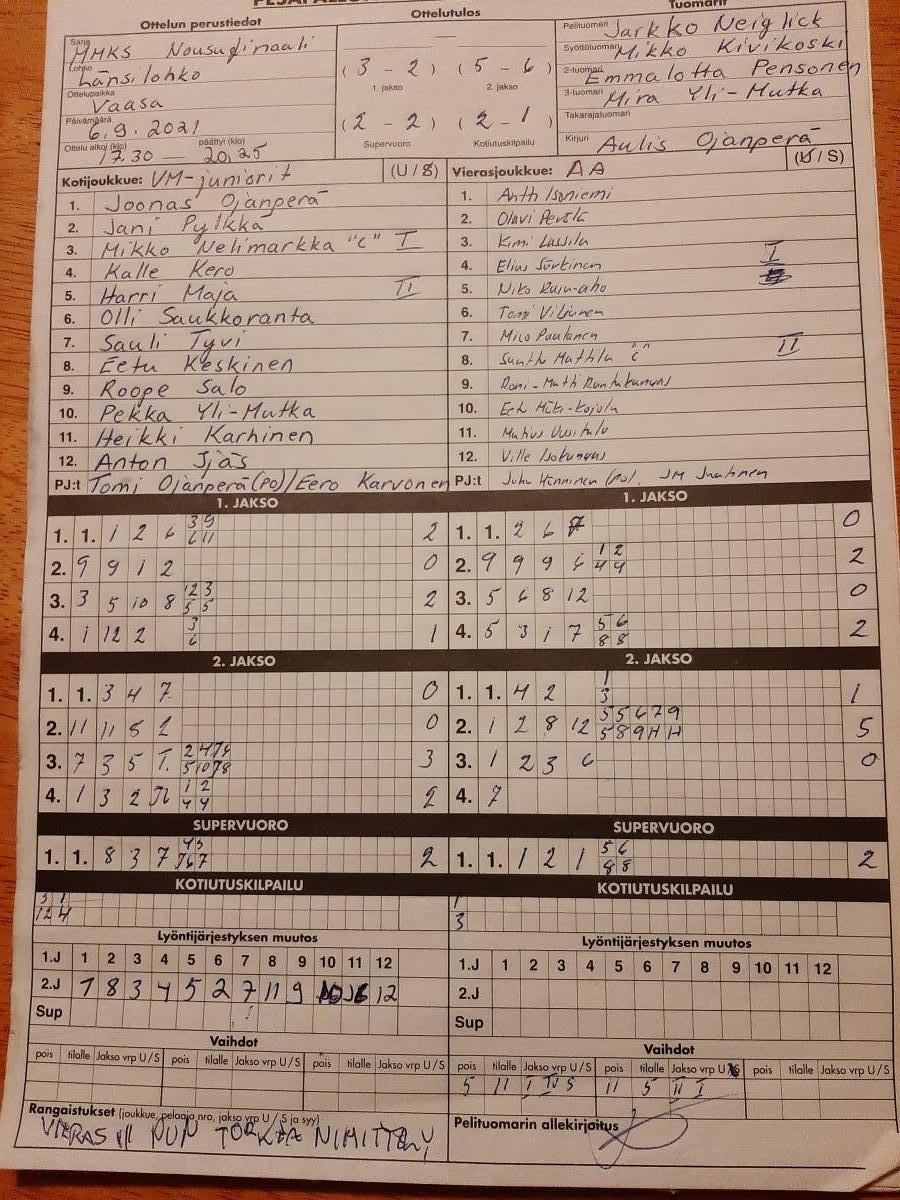 Ottelun perustiedot
Sarja MMKS Nousufinaali
Lohko Länsilohko
Ottelupaikka Vaasa
Päivämäärä 6.9.2021
Ottelu alkoi (klo) 17.30 — päättyi (klo) 20.25
Ottelutulos
(3 - 2) (5 - 6)
1. jakso 2. jakso
(2 - 2) (2 - 1)
Supervuoro Kotiutuskilpailu
Tuomarit
Pelituomari Jarkko Neiglick
Syöttötuomari Mikko Kivikoski
2-tuomari Emmalotta Pensonen
3-tuomari Mira Yli-Mutka
Takarajatuomari
Kirjuri Aulis Ojanperä
Kotijoukkue: VM-juniorit (U / S)
1. Joonas Ojanperä
2. Jani Pylkkä
3. Mikko Nelimarkka "C" I
4. Kalle Kero
5. Harri Maja II
6. Olli Saukkoranta
7. Sauli Tyvi
8. Eetu Keskinen
9. Roope Salo
10. Pekka Yli-Mutka
11. Heikki Karhinen
12. Anton Ijäs
PJ:t Tomi Ojanperä (PO)/Eero Karvonen
Vierasjoukkue: AA (U / S)
1. Antti Isoniemi
2. Olavi
3. Kimi Lassila
4. Elias I
5. Niko
6. Tomi
7. Mico Pautanen
8. "C" II
9.
10.
11.
12. Ville
PJ:t Juha Hänninen (PO). JM
1. JAKSO
1. 1. 1 2 6 3 9 2
6 11
2. 9 9 1 2 0
3. 3 5 10 8 12 3 2
5 5
4. 1 12 2 3 1
6
1. JAKSO
1. 1. 2 6 7 0
2. 9 9 9 6 1 2 2
4 4
3. 5 6 8 12 0
4. 5 3 1 7 5 6 2
8 8
2. JAKSO
1. 1. 3 4 7 0
2. 11 11 5 2 0
3. 7 3 5 3
4. 1 3 2 1 2 2
4 4
2. JAKSO
1. 1. 4 2 1 1
3
2. 1 2 8 12 5 5 6 7 9 5
5 8 9 11 11
3. 1 2 3 6 0
4. 7
SUPERVUORO
1. 1. 8 3 7 2
SUPERVUORO
1. 1. 1 2 1 5 6 2
8 8
KOTIUTUSKILPAILU
3 1
12 4
KOTIUTUSKILPAILU
1
3
Lyöntijärjestyksen muutos
1.J 1 2 3 4 5 6 7 8 9 10 11 12
2.J 1 8 3 4 5 2 7 11 9 10 12
Sup
Lyöntijärjestyksen muutos
1.J 1 2 3 4 5 6 7 8 9 10 11 12
2.J
Sup
Vaihdot
pois tilalle Jakso vrp U/S pois tilalle Jakso vrp U/S pois tilalle Jakso vrp U/S
Vaihdot
pois tilalle Jakso vrp U/S pois tilalle Jakso vrp U/S pois tilalle Jakso vrp U/S
5 11 I IV S 11 5 II I
Rangaistukset (joukkue, pelaaja nro, jakso vrp U / S ja syy)
VIERAS
Pelituomarin allekirjoitus